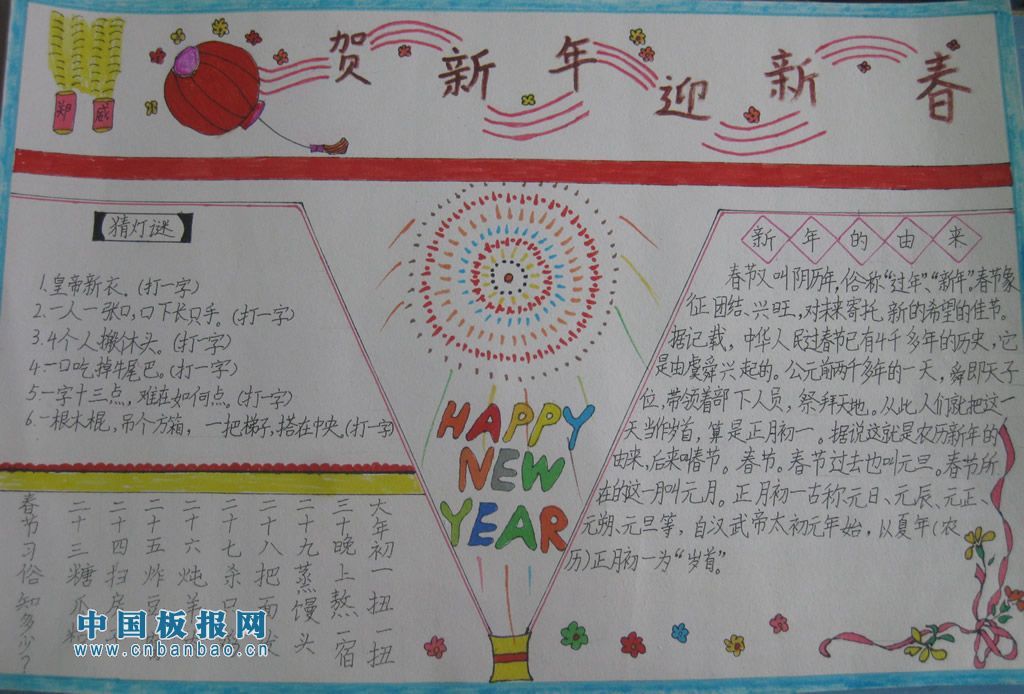 郑 威
贺新年迎新春
猜灯谜
1.皇帝新衣。(打一字)
2.一人一张口,口下长只手。(打一字)
3.4个人搬休头。(打一字)
4.一口吃掉牛尾巴。(打一字)
5.一字十三点,难在如何点。(打一字)
6.一根木棍,吊个方箱,一把梯子,搭在中央。(打一字)
春节习俗知多少?
二十三糖瓜
二十四扫房
二十五炸豆
二十六炖羊
二十七杀只
二十八把面发
二十九蒸馒头
三十晚上熬一宿
大年初一扭一扭
HAPPY
NEW
YEAR
新年的由来
春节又叫阴历年,俗称“过年”、“新年”。春节象
征团结、兴旺,对未来寄托新的希望的佳节。
据记载,中华人民过春节已有4千多年的历史,它
是由虞舜兴起的。公元前两千多年的一天,舜即天子
位,带领着部下人员,祭拜天地。从此人们就把这一
天当作岁首,算是正月初一。据说这就是农历新年的
由来,后来叫春节。春节。春节过去也叫元旦。春节所
在的这一月叫元月。正月初一古称元日、元辰、元正、
元朔、元旦等,自汉武帝太初元年始,以夏年(农
历)正月初一为“岁首”。
中国板报网
www.cnbanbao.cn